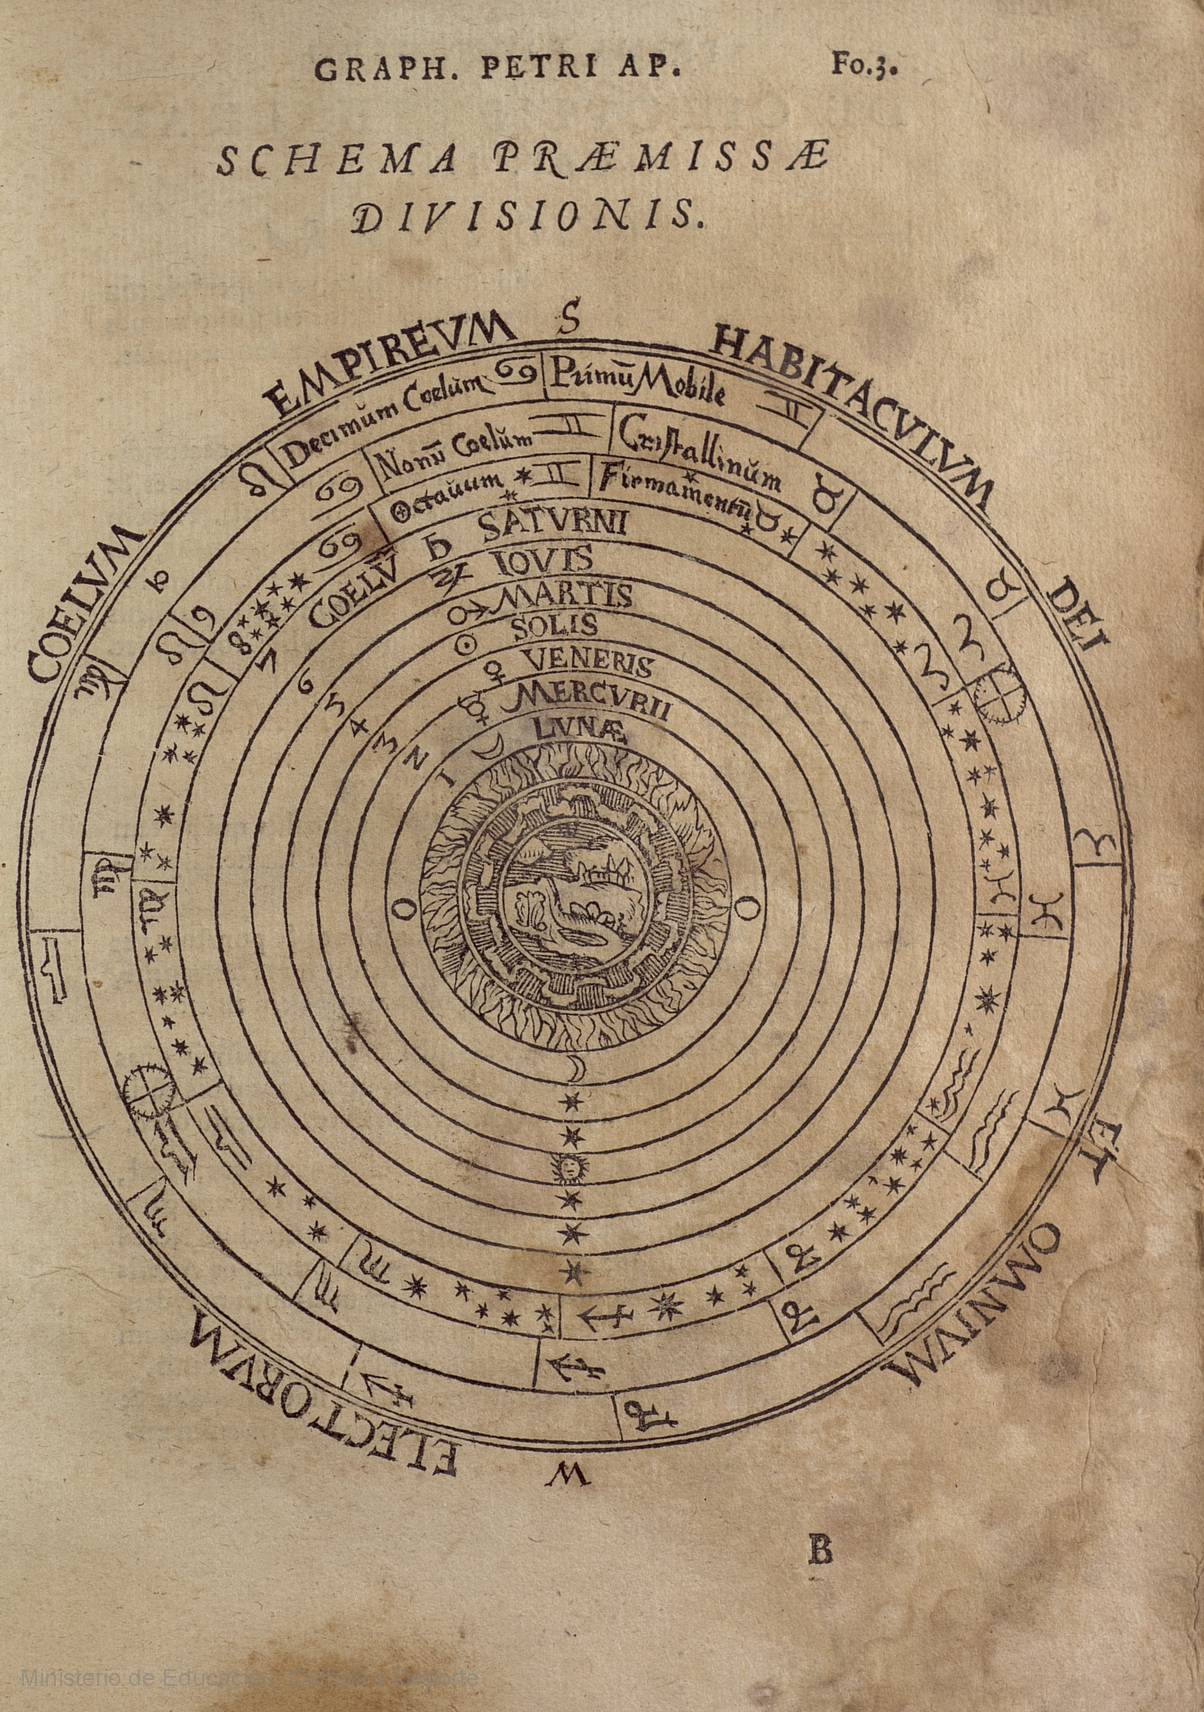 GRAPH. PETRI AP. Fo.3.
SCHEMA PRÆMISSÆ
DIVISIONIS.
S
COELVM EMPIREVM HABITACVLVM DEI ET OMNIVM ELECTORVM
Decimũm Coelũm ♋ Primũ Mobile ♊
Nonũ Coelũm ♊ Cristallinũm ♉
Octauum ♊ Firmamentũ ♉
COELṼ ♄ SATVRNI
♃ IOVIS
♂ MARTIS
☉ SOLIS
♀ VENERIS
☿ MERCVRII
☾ LVNÆ
8
7
6
5
4
3
2
1
O O
M
B
Ministerio de Educación, Cultura y Deporte